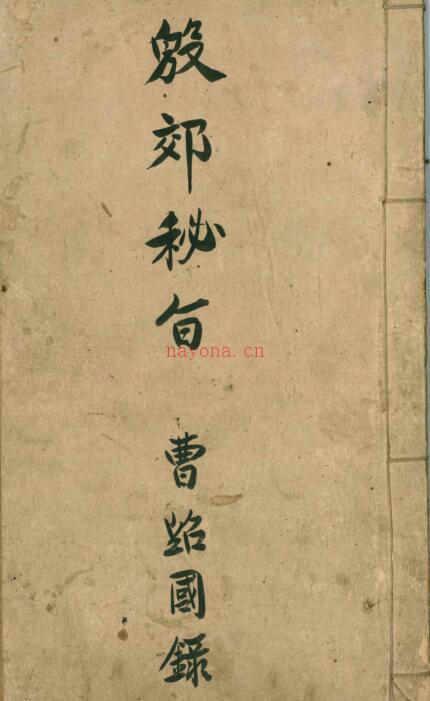 殷郊秘旨 曹國錄
nayona.cn